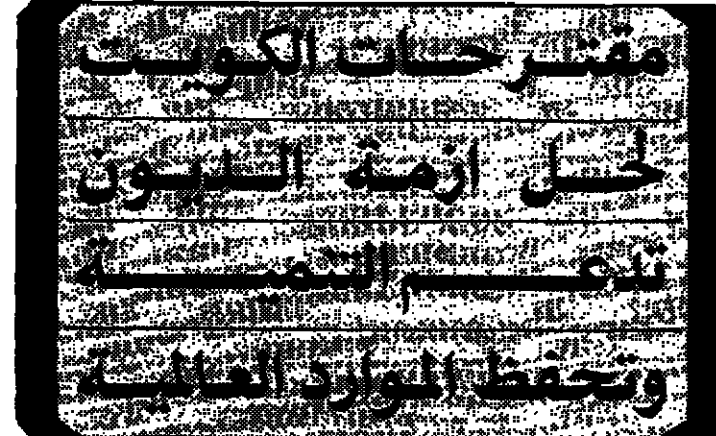 مقترحات الكويت
لحل ازمة الديون
تدعم التنمية
وتحفظ الموارد العالمية